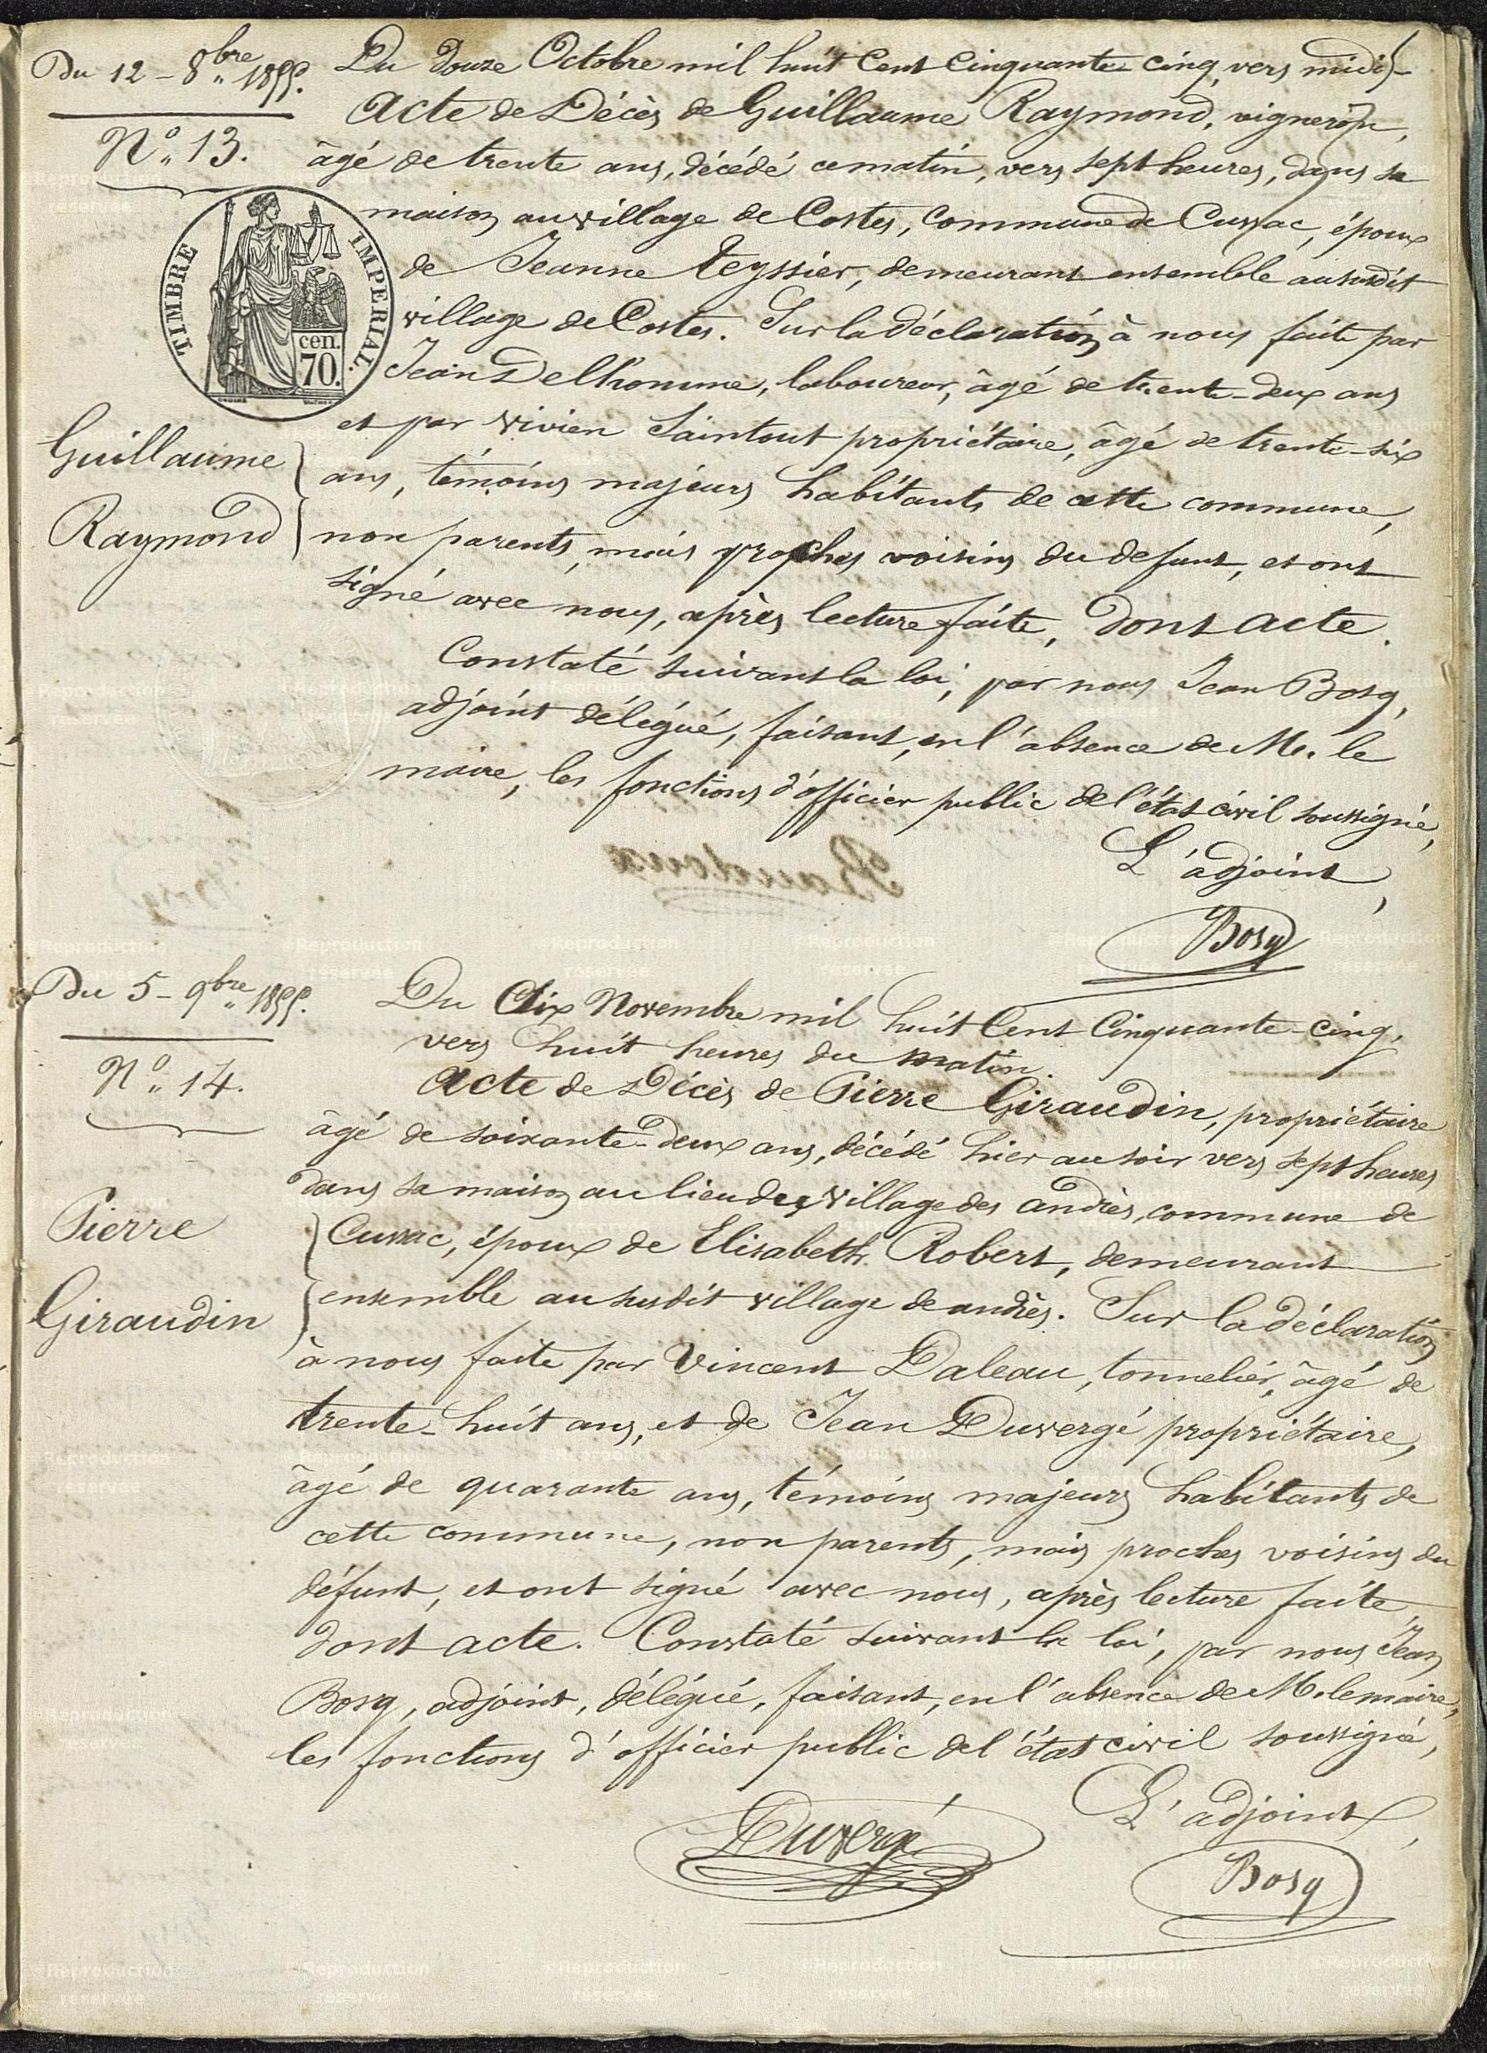 Du 12 - 8bre 1855.
N° 13.
Guillaume
Raymond
Du Douze Octobre mil huit Cent Cinquante-cinq, vers midi,
Acte de Décès de Guillaume Raymond, vigneron,
âgé de trente ans, décédé ce matin, vers sept heures, dans sa
maison au village de Costes, Commune de Cussac, époux
de Jeanne Teyssier, demeurant ensemble au susdit
village de Costes. Sur la déclaration à nous faite par
Jean Delhomme, laboureur, âgé de trente-deux ans
et par Vivien Saintout propriétaire, âgé de trente-six
ans, témoins majeurs habitants de cette commune,
non parents, mais proches voisins du defunt, et ont
signé avec nous, après lecture faite, dont acte.
Constaté suivant la loi, par nous Jean Bosq,
adjoint délégué, faisant, en l'absence de Mr. le
maire, les fonctions d'officier public de l'état civil soussigné,
L'adjoint,
Bosq
TIMBRE IMPERIAL.
cen.
70.
Du 5 - 9bre 1855.
N° 14.
Pierre
Giraudin
Du dix Novembre mil huit Cent Cinquante-cinq,
vers huit heures du matin.
Acte de Décès de Pierre Giraudin, propriétaire
âgé de soixante-deux ans, décédé hier au soir vers sept heures
dans sa maison au lieu des village des andrès, commune de
Cussac, époux de Elisabeth Robert, demeurant
ensemble au susdit village de andrès. Sur la déclaration
à nous faite par Vincent Daleau, tonnelier, âgé de
trente-huit ans, et de Jean Duvergé propriétaire,
âgé de quarante ans, témoins majeurs habitants de
cette commune, non parents, mais proches voisins du
défunt, et ont signé avec nous, après lecture faite
dont acte. Constaté suivant la loi, par nous Jean
Bosq, adjoint, délégué, faisant, en l'absence de Mr. le maire,
les fonctions d'officier public de l'état civil soussigné,
L'adjoint,
Duvergé
Bosq